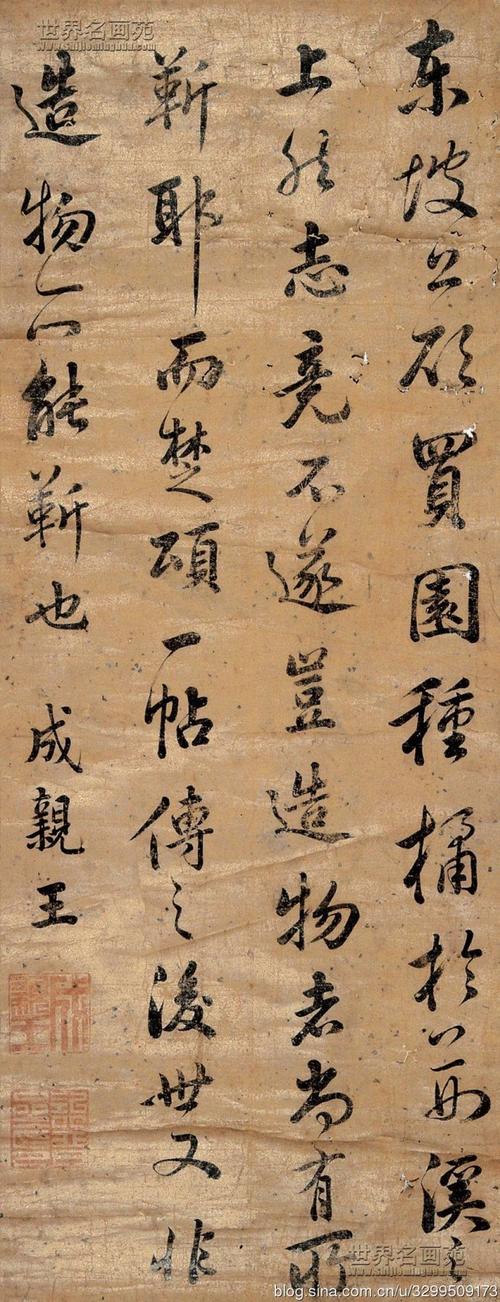 世界名画苑
东坡公欲買園種橘於荊溪之
上然志竟不遂豈造物者尚有所
靳耶而楚頌一帖傳之後世又非
造物所能靳也
成親王
世界名画苑
blog.sina.com.cn/u/3299509173